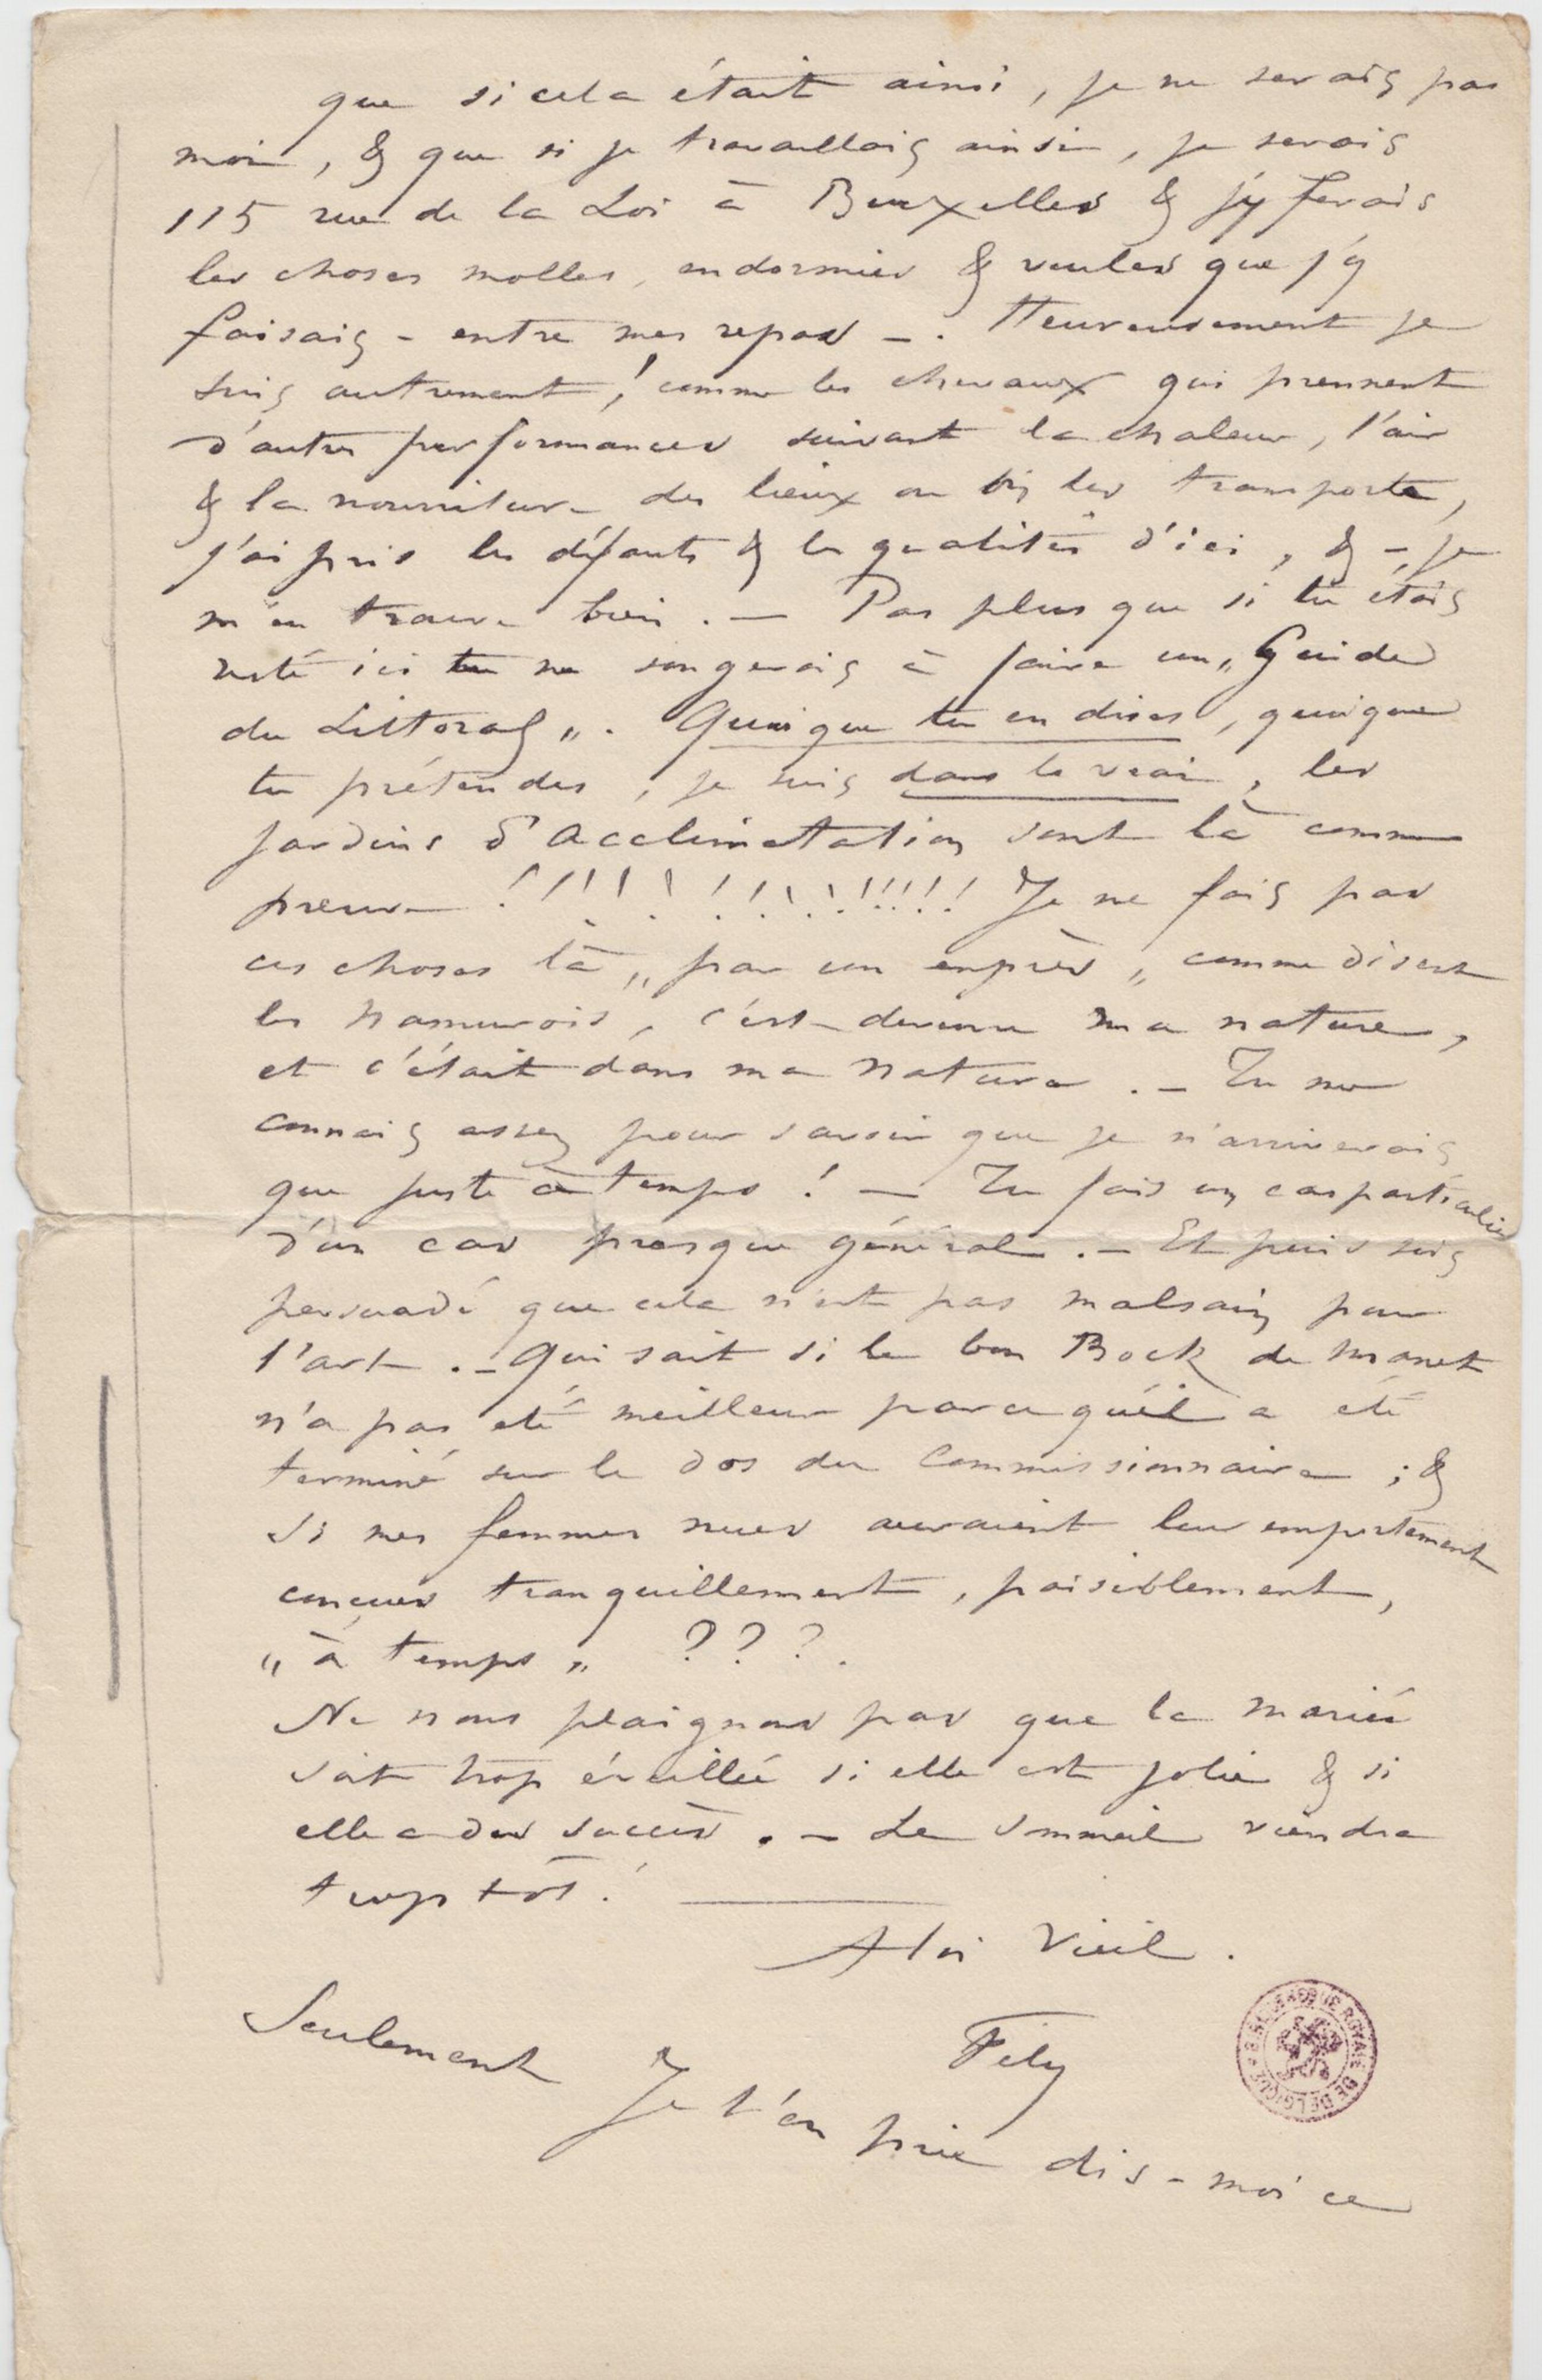 que si cela était ainsi, je ne serais pas
moi, & que si je travaillais ainsi, je serais
115 rue de la Loi à Bruxelles & j'y ferais
les choses molles, endormies & veules que j'y
faisais - entre mes repas -. Heureusement je
suis autrement, ! comme les chevaux qui prennent
d'autres performances suivant la chaleur, l'air
& la nourriture des lieux où on les transporte,
j'ai pris les défauts & les qualités d'ici, & - je
m'en trouve bien. — Pas plus que si tu étais
resté ici tu ne songerais à faire un „Guide
du Littoral„. Quoique tu en dises, quoique
tu prétendes, je suis dans le vrai, les
jardins d'Acclimatation sont là comme
preuve !!!!!!!!!!!!!!! Je ne fais pas
ces choses là „par un exprès„ comme disent
les namurois, c'est devenu ma nature,
et c'était dans ma nature. — Tu me
connais assez pour savoir que je n'arriverais
que juste à temps ! — Tu fais un cas particulier
d'un cas presque général. — Et puis sois
persuadé que cela n'est pas malsain pour
l'art. — Qui sait si le bon Bock de Manet
n'a pas été meilleur parce qu'il a été
terminé sur le dos du Commissionnaire ; &
si mes femmes nues auraient leur emportement
conçues tranquillement, paisiblement,
„à temps„ ???.
Ne nous plaignons pas que la mariée
soit trop éveillée si elle est jolie & si
elle a du succès. — Le sommeil viendra
trop tôt !
A toi Vieil.
Fély
Seulement Je t'en prie dis-moi ce
BIBLIOTHÈQUE ROYALE DE BELGIQUE